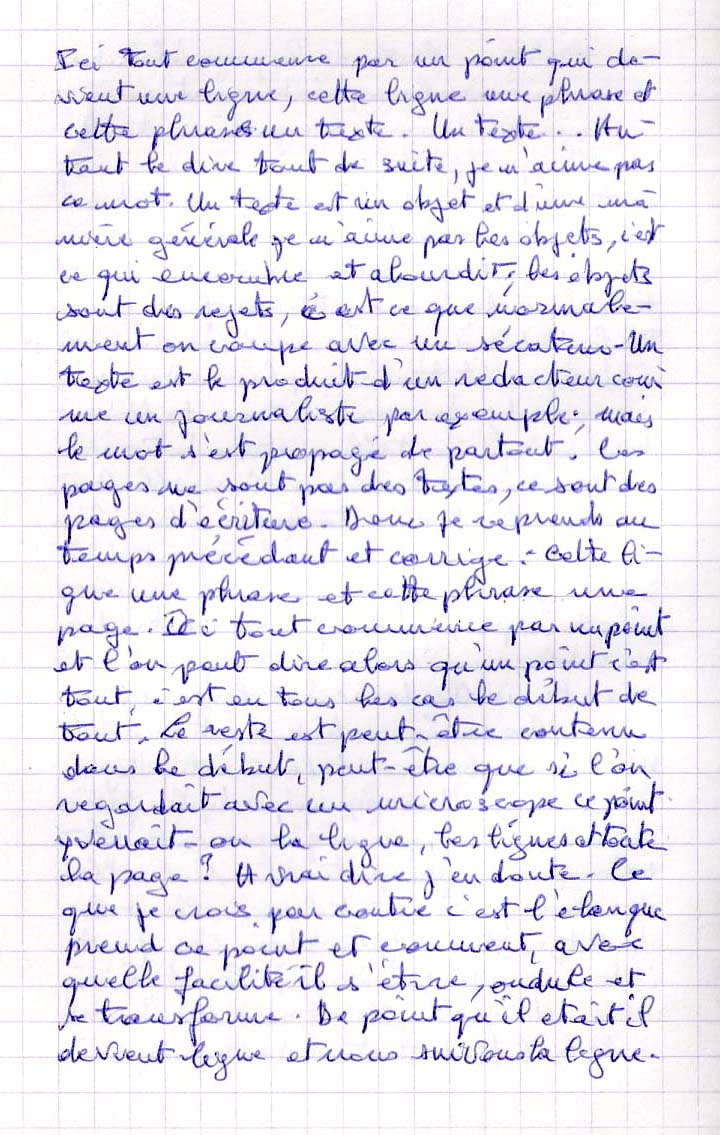 Ici tout commence par un point qui de-
vient une ligne, cette ligne une phrase et
cette phrase un texte. Un texte... Au-
tant le dire tout de suite, je n'aime pas
ce mot. Un texte est un objet et d'une ma
nière générale je n'aime pas les objets, c'est
ce qui encombre et alourdit, les objets
sont des rejets, c'est ce que normale-
ment on coupe avec un sécateur. Un
texte est le produit d'un rédacteur com
me un journaliste par exemple, mais
le mot s'est propagé de partout. Ces
pages ne sont pas des textes, ce sont des
pages d'écriture. Donc je reprends au
temps précédant et corrige : - Cette li-
gne une phrase et cette phrase une
page. Ici tout commence par un point
et l'on peut dire alors qu'un point c'est
tout, c'est en tous les cas le début de
tout. Le reste est peut-être contenu
dans le début, peut-être que si l'on
regardait avec un microscope ce point
y verrait-on la ligne, les lignes et toute
la page ? A vrai dire j'en doute. Ce
que je crois par contre c'est l'élan que
prend ce point et comment, avec
quelle facilité il s'étire, ondule et
se transforme. De point qu'il était il
devient ligne et nous suivons la ligne.